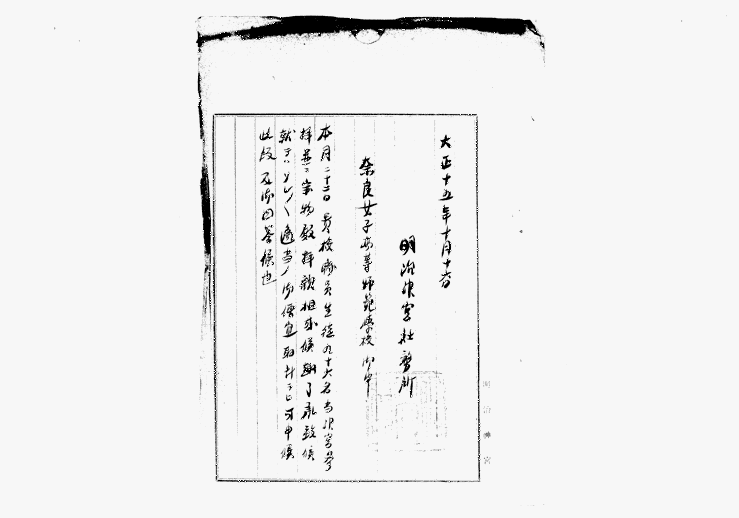 大正十五年十月十六日
明治神宮社務所
奈良女子高等師範学校 御中
本月二十二日貴校職員生徒九十六名当神宮参
拝並ニ宝物殿拝観相成候趣了承致候
就テハ適当ノ御便宜取計ラヒ可申候
此段及御回答候也
明治神宮